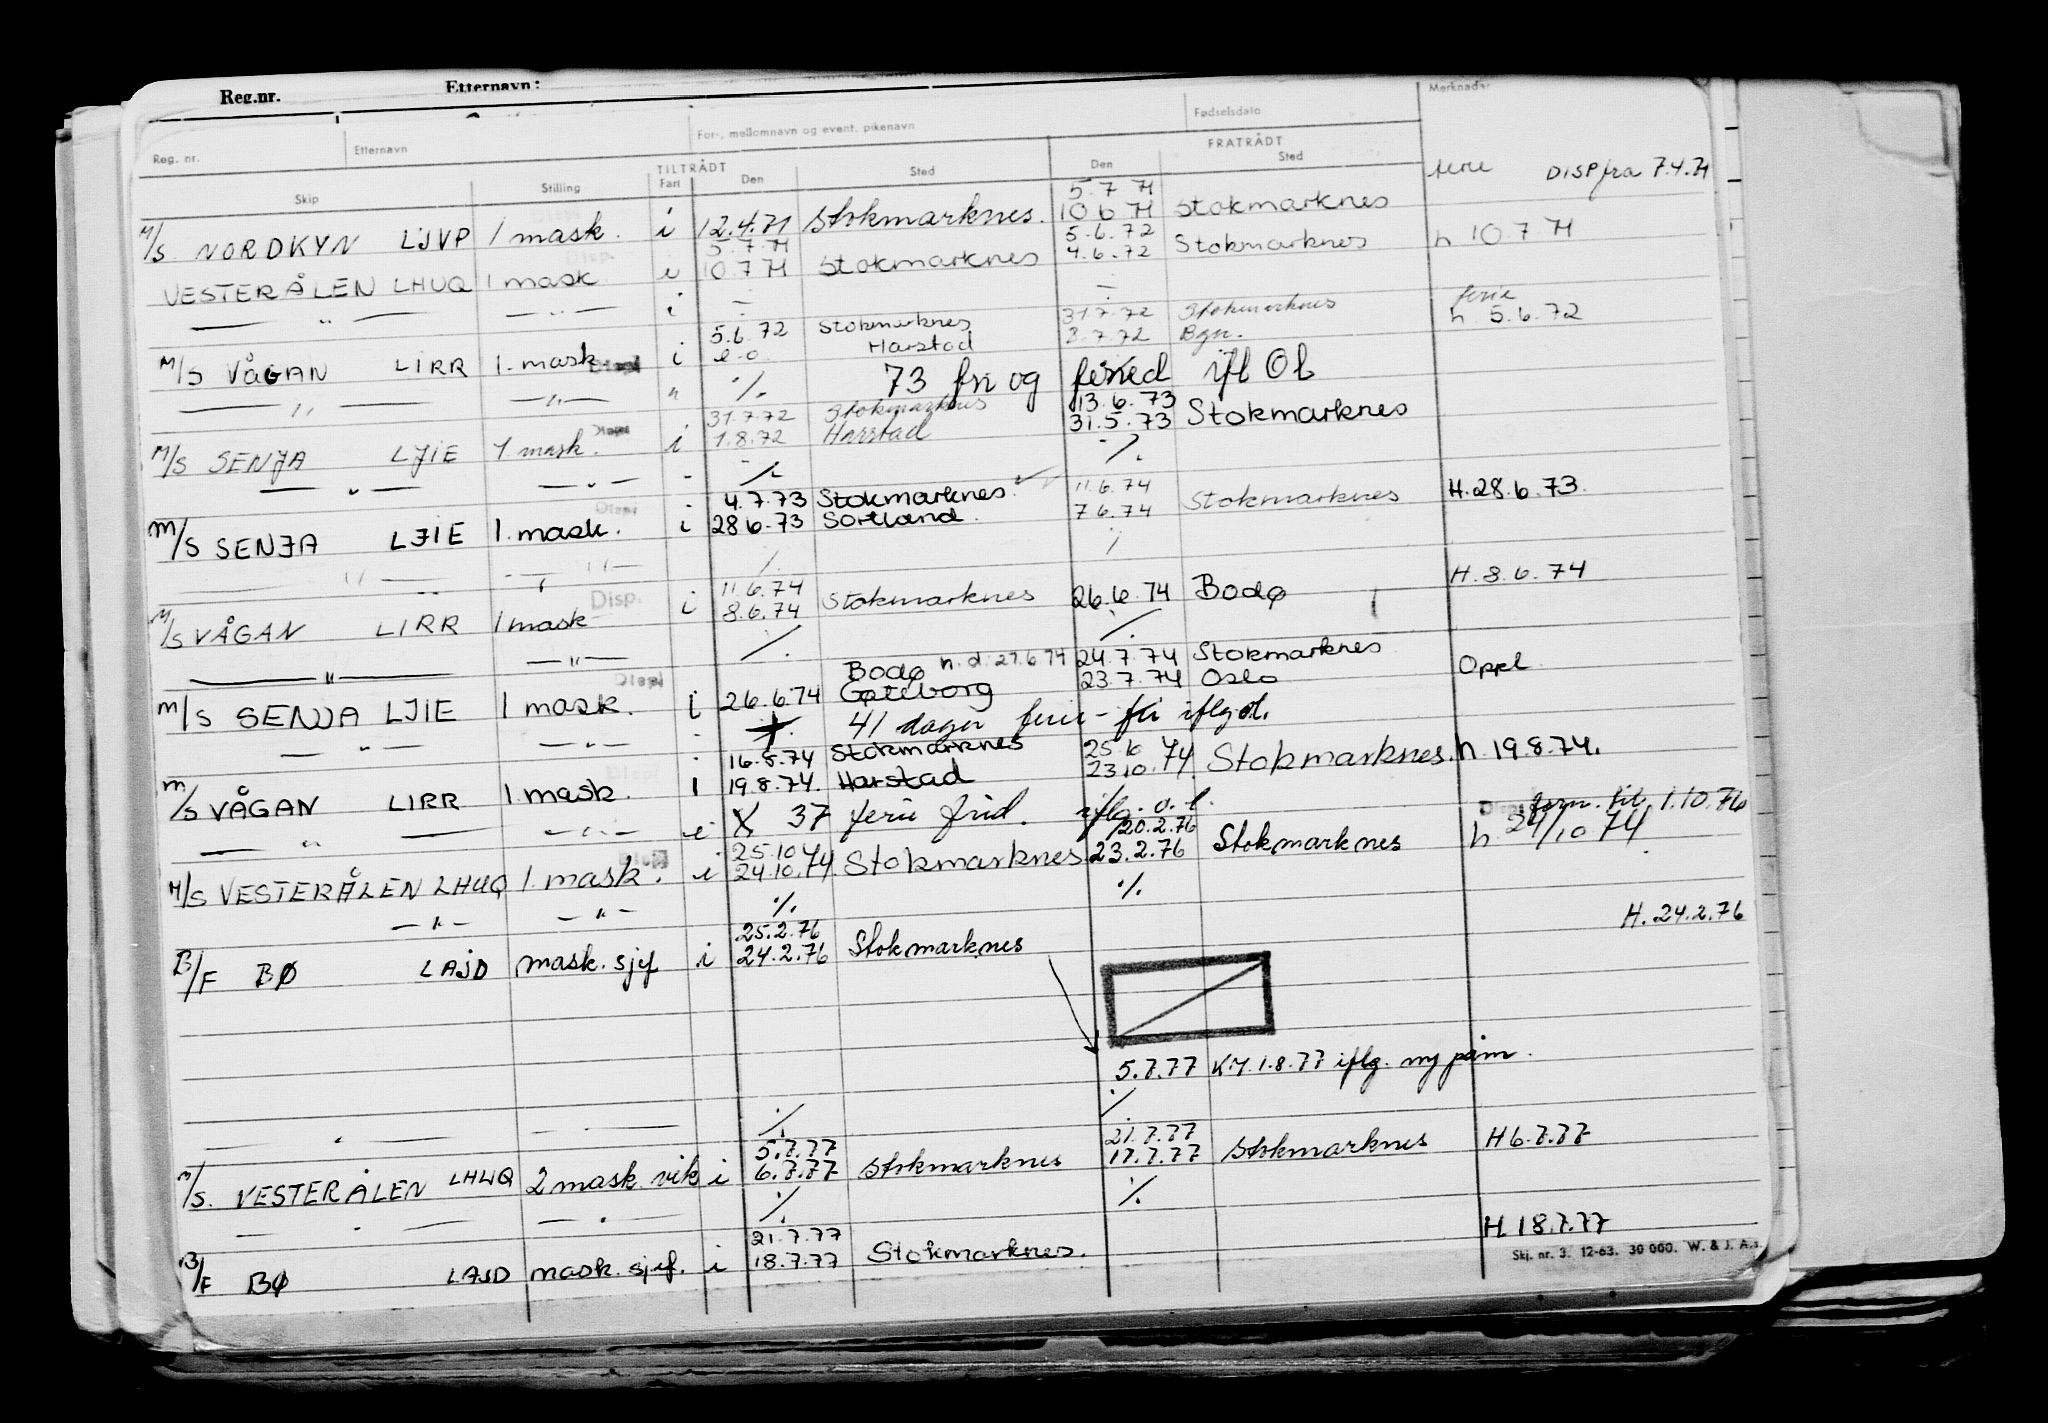 Reg.nr. Etternavn:
Reg. nr. Etternavn For-, mellomnavn og event. pikenavn Fødselsdato Merknader
TILTRÅDT FRATRÅDT
Skip Stilling Fart Den Sted Den Sted ferie DISP fra 7.4.71
Displ 5.7 71
M/S NORDKYN LJVP 1 mask. i 12.4.71 Stokmarknes. 10 6 71 Stokmarknes
Disp. 5.7.71 5.6.72
VESTERÅLEN LHUQ 1 mask i 10.7 71 Stokmarknes 4.6.72 Stokmarknes h 10.7 71
— " — — " — i — —
5.6.72 Stokmarknes 31.7.72 Stokmarknes ferie
M/S VÅGAN LIRR 1. mask Displ i e.o. Harstad 8.7.72 Bgn. h 5.6.72
— " — — " — " ·/. 73 fri og feried ifl Ol
31.7.72 Stokmarknes 13.6.73
M/S SENJA LJIE 1 mask. Displ i 1.8.72 Harstad 31.5.73 Stokmarknes
— " — — " — - ·/. ·/.
Displ 4.7.73 Stokmarknes. 11.6.74
M/S SENJA LJIE 1. mask. i 28 6.73 Sortland. 7 6.74 Stokmarknes H.28.6.73.
— " — — " — ·/. ·/.
11.6.74
M/S VÅGAN LIRR 1 mask Disp. i 8.6.74 Stokmarknes 26.6.74 Bodø H.8.6.74
— " — — " — ·/. ·/.
Displ Bodø h.d. 27.6.74 24.7.74 Stokmarknes
M/S SENJA LJIE 1 mask. i 26.6.74 Gøteborg 23.7.74 Oslo Oppl
— " — — " — 41 dager ferie - fri iflg ol.
Displ 16.8.74 Stokmarknes 25.10
M/S VÅGAN LIRR 1 mask. i 19.8.74. Harstad 23.10.74 Stokmarknes. h. 19.8.74.
— " — — " — i 37 ferie frid. iflg. o.l. forn. til 1.10.76
Displ 25.10 74 20.2.76
M/S VESTERÅLEN LHUQ 1. mask. i 24.10.74 Stokmarknes 23.2.76 Stokmarknes h 24/10 74
— " — — " — ·/. ·/.
25.2.76
B/F BØ LAJD mask. sjef i 24.2.76 Stokmarknes H. 24.2.76
5.7.77 K7 1.8.77 iflg. ny påm.
— " — — " — ·/. ·/.
5.7.77 21.7.77
M/S. VESTERÅLEN LHUQ 2 mask. vik i 6.7.77 Stokmarknes 17.7.77 Stokmarknes H 6.7.77
— " — — " — ·/. ·/.
21.7.77
B/F BØ LAJD mask. sjef. i 18.7.77 Stokmarknes. H. 18.7.77
Skj. nr. 3. 12-63. 30 000. W. & J. A.s